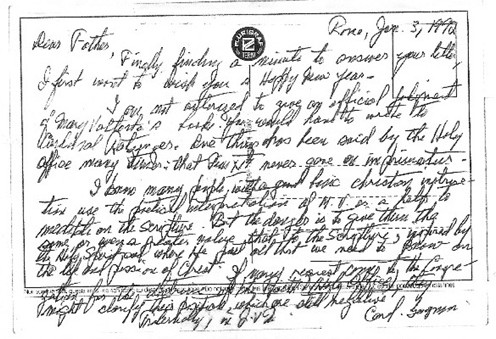 Rome, Jan. 3, 1992
Dear Father,
Finally, finding a minute to answer your letter
I first want to wish you a Happy New Year.
I am not autorized to give an official judgment
of Mary Valtorta's books. You would have to write to
Cardinal Ratzinger. One thing has been said by the Holy
office many times: that Pius XII never gone an imprimatur.
I know many people, with a good basic christian instruc-
tion use the poetical interpretation of M.V. as a help to
meditate on the Scripture. But the danger is to give them the
same or even a greater value than to the Scripture, inspired by
the Holy Spirit and where we find all that we need to know on
the life and passion of Christ. If many request to the Congre-
gation for the
might clarify this position, which are still negative
Fraternally,
Card. Gagnon